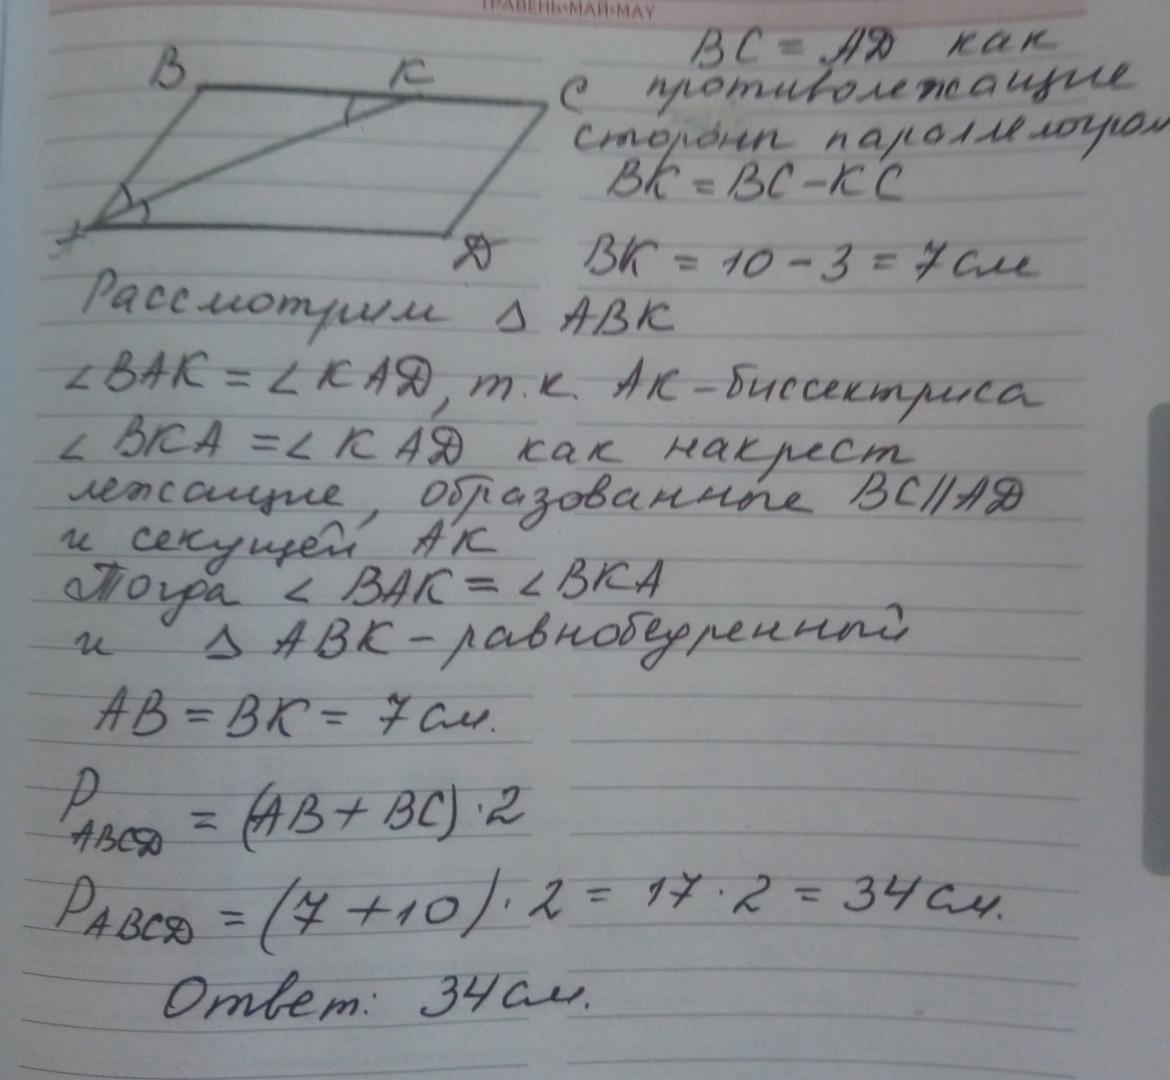 ТРАВЕНЬ•МАЙ•MAY
BC = AD как
противолежащие
стороны параллелограм
BK = BC - KC
BK = 10 - 3 = 7 см
B
K
C
A
D
Рассмотрим Δ ABK
∠BAK = ∠KAD, т.к. AK - биссектриса
∠BKA = ∠KAD как накрест
лежащие, образованные BC||AD
и секущей AK
Тогда ∠BAK = ∠BKA
и Δ ABK - равнобедренный
AB = BK = 7 см.
P ABCD = (AB + BC) · 2
P ABCD = (7 + 10) · 2 = 17 · 2 = 34 см.
Ответ: 34 см.